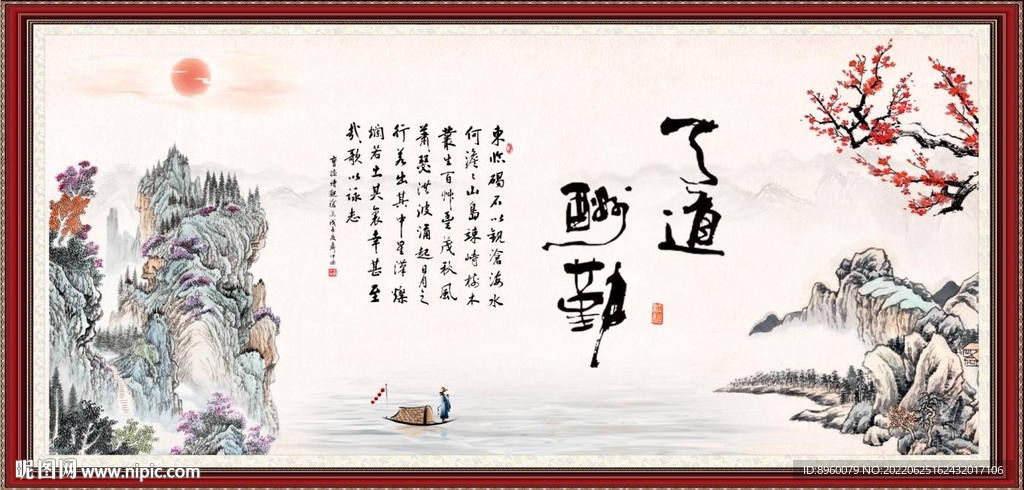 天道
酬勤
東臨碣石以觀滄海水
何澹々山島竦峙樹木
叢生百艸豐茂秋風
蕭瑟洪波涌起日月之
行若出其中星漢燦
爛若出其裏幸甚至
哉歌以詠志
曹操詩觀滄海
昵图网 www.nipic.com
ID:8960079 NO:20220625162432017106